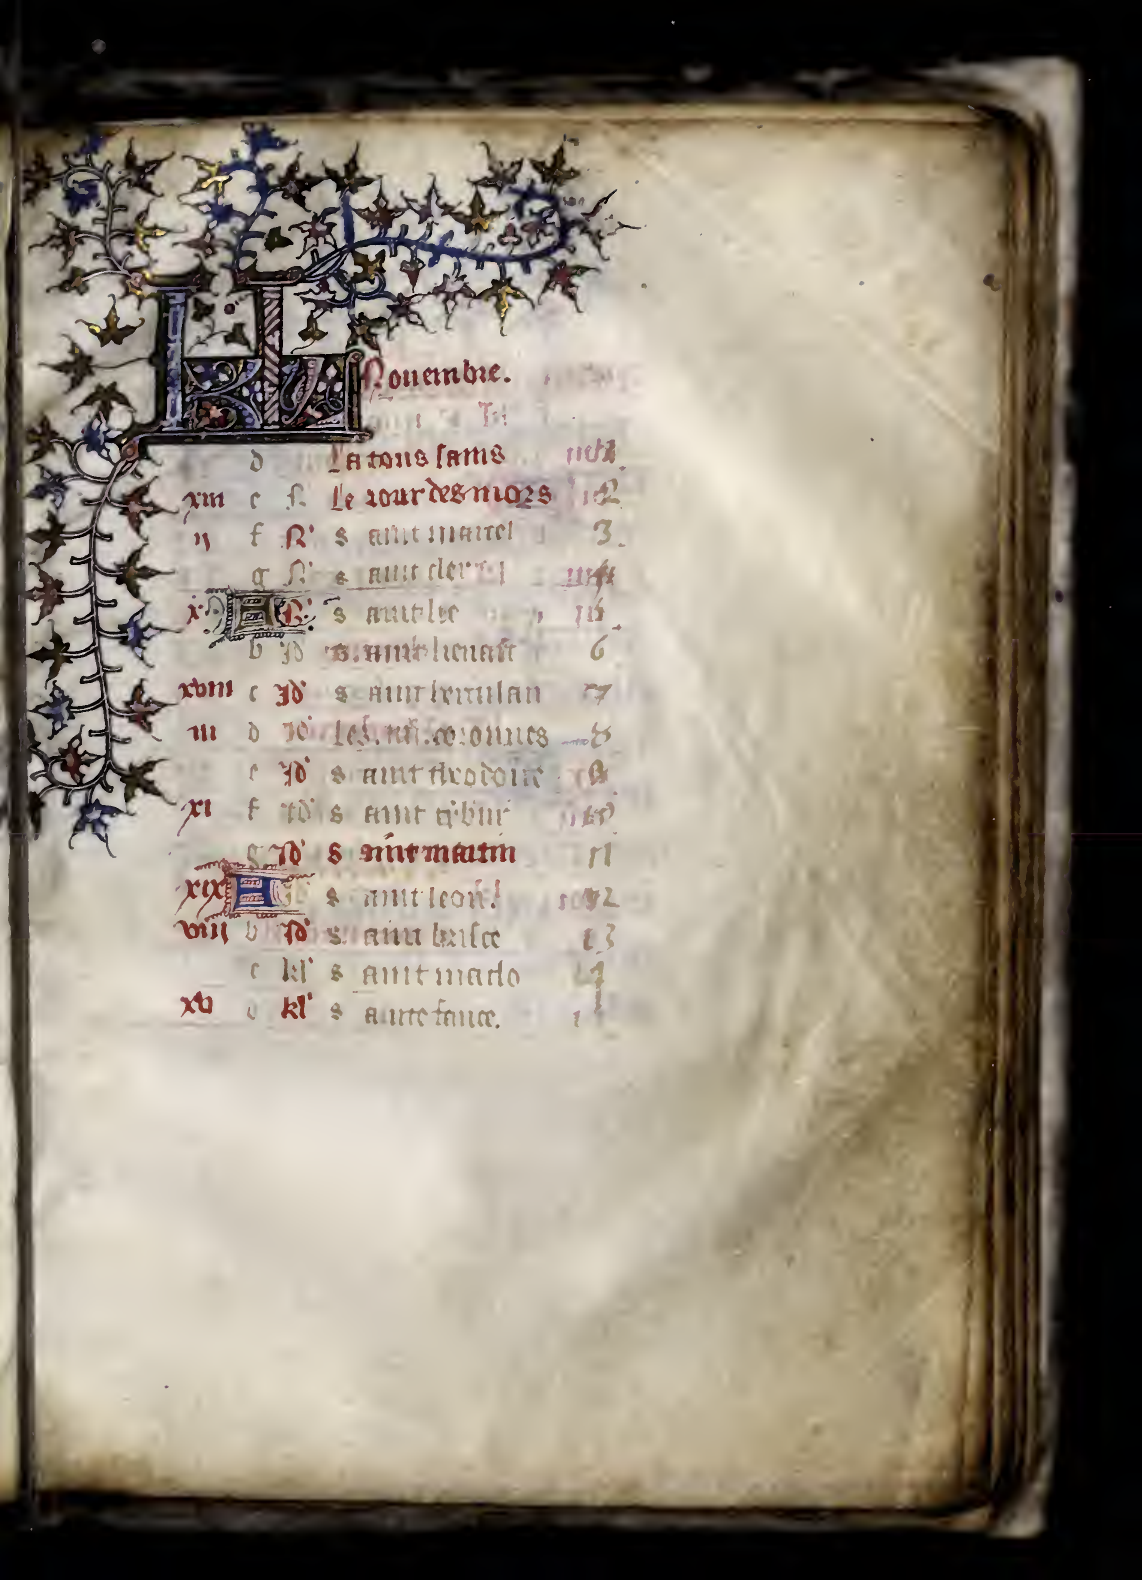 KL Nouembre.
d La tous sains 1
xiii e N' Le iour des mors 2
ii f N' s aint marcel 3
g N' s aint cler
A N' s aint lie
b Id' s. aint lienart 6
xviii c Id' s aint herculan 7
iii d Id' Les .iiii. coronnes 8
e Id' s aint theodore
xi f Id' s aint
g Id' s aint martin 11
xix A Id' s aint 12
viii b Id' s. aint brisce 13
c kl' s aint maclo 14
xvi d kl' s ainte